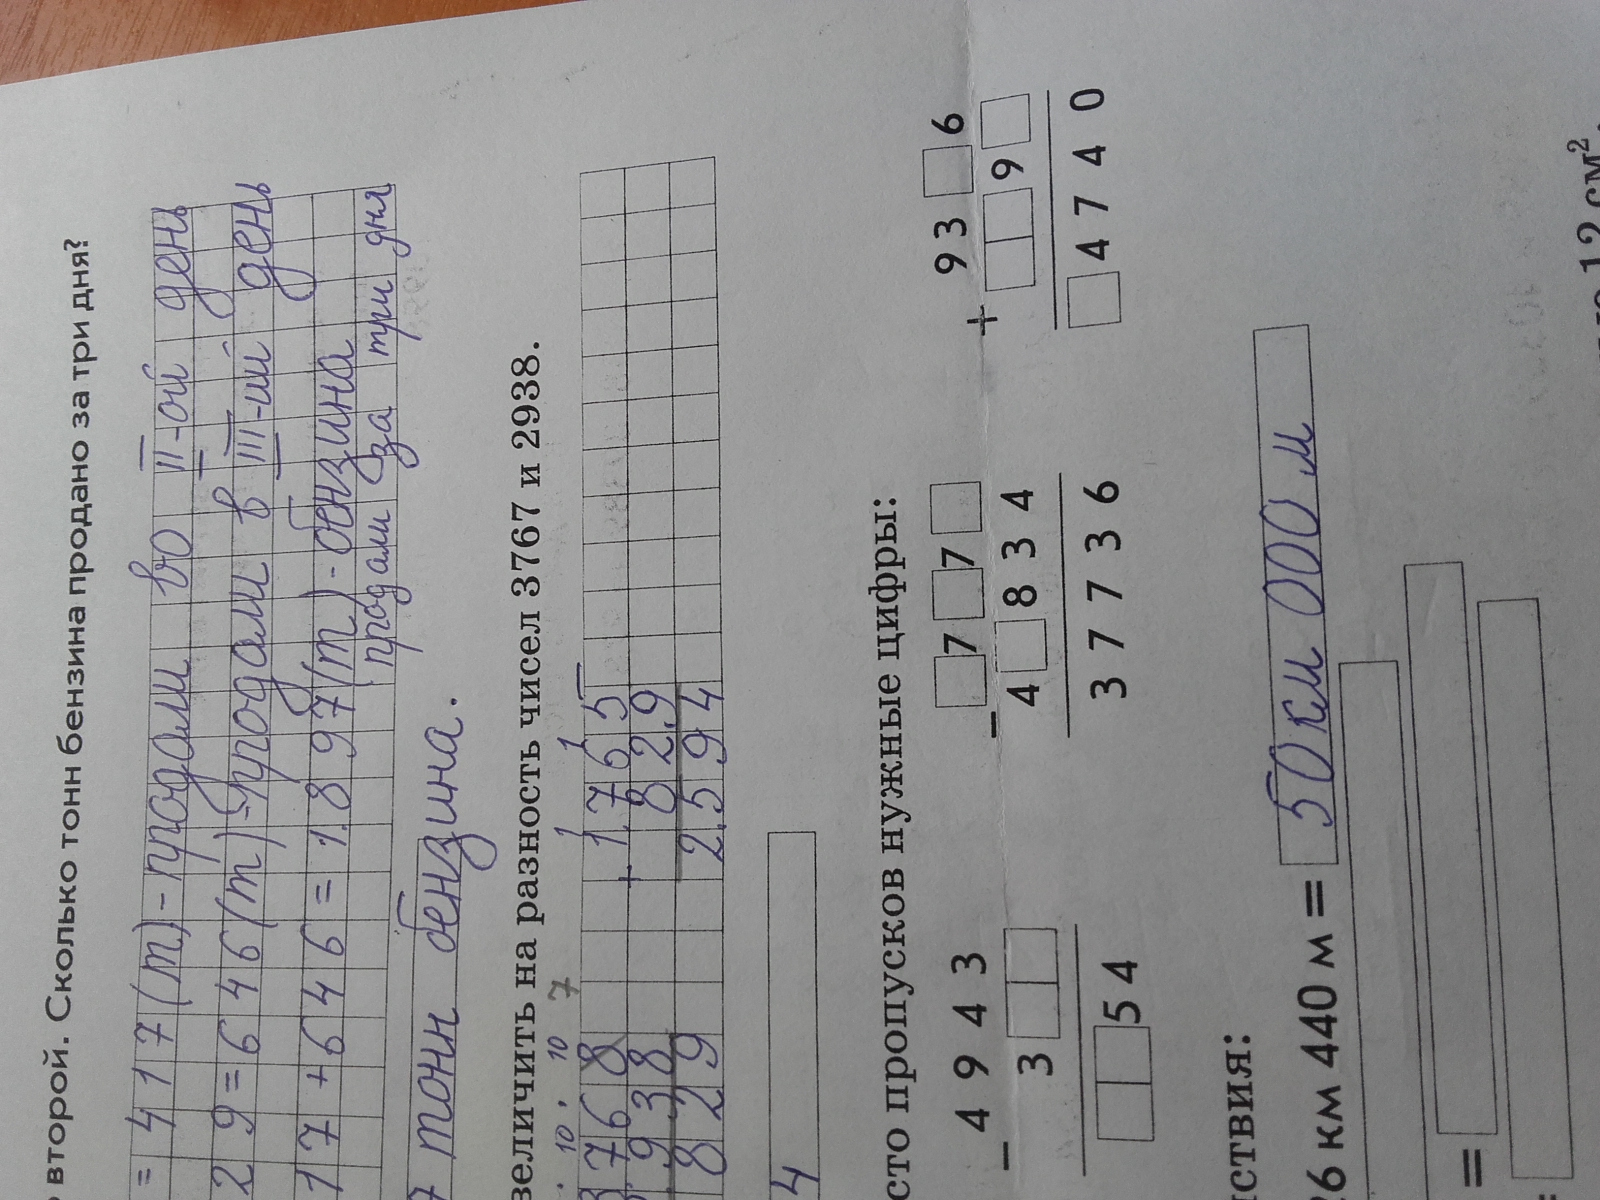 второй. Сколько тонн бензина продано за три дня?
= 417 (т) - продали во II-ой день
29 = 646 (т) - продали в III-ий день
17 + 646 = 1897 (т) - бензина
продали за три дня
7 тонн бензина.
величить на разность чисел 3767 и 2938.
10 10 7
3768
938
829
1 1
1765
+ 829
2594
4
сто пропусков нужные цифры:
− 4943
3□□
□□54
− □7□7□
4□834
37736
+ 93□6
□□9□
□4740
ствия:
26 км 440 м = 50 км 000 м
=
12 см²